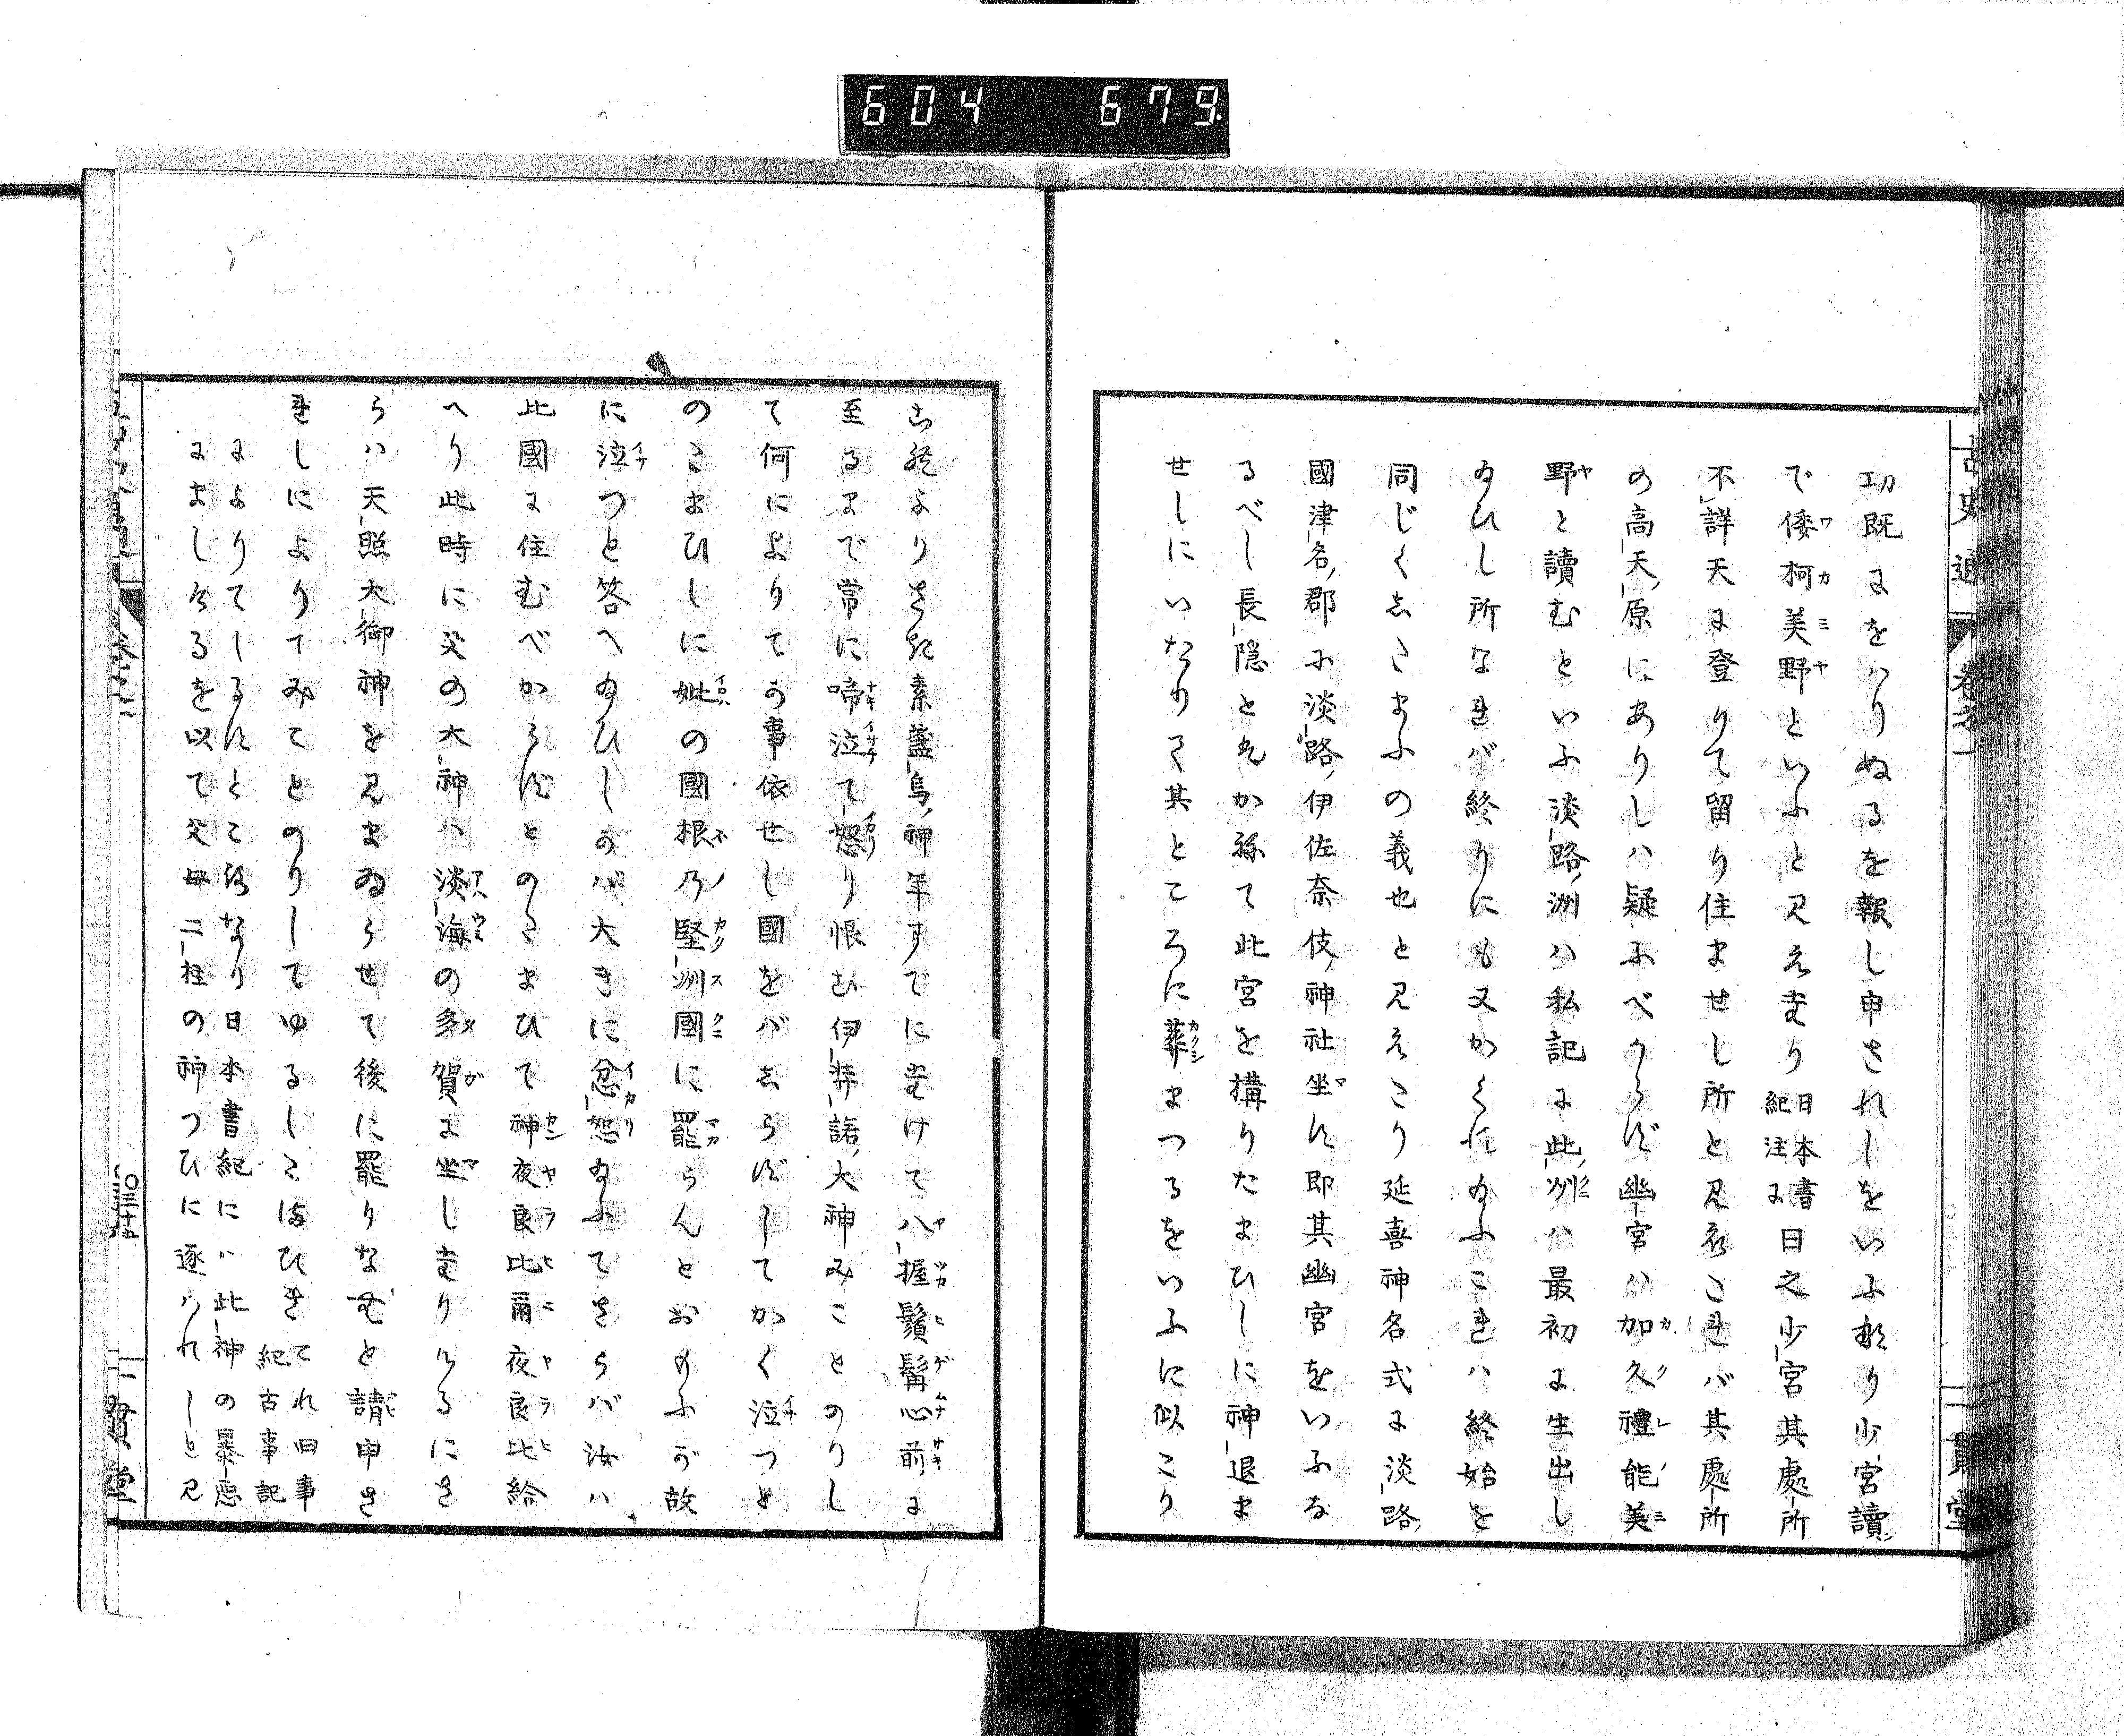 604 679
古史通 卷之一
功既にをハりぬるを報し申されしをいふ也り少宮讀
で倭柯美野といふと見え侍り日本書紀注に日之少宮其處所
不詳天に登りて留り住ませし所と見えたれバ其處所
の高天原にありしハ疑ふべからず幽宮ハ加久禮能美
野と讀むといふ淡路洲ハ私記に此洲ハ最初に生出し
給ひし所なれバ終りにも又かくれ給ふこれハ終始を
同じくしたまふの義也と見えたり延喜神名式に淡路
國津名郡に淡路伊佐奈伎神社坐す即其幽宮をいふな
るべし長隠とハかねて此宮を構りたまひしに神退ま
せしにいたりて其ところに葬まつるをいふに似たり
是よりさき素盞烏神年すでにたけて八握鬚髯心前に
至るまで常に啼泣て怒り恨む伊弉諾大神みことのりし
て何によりてか事依せし國をばしらずしてかく泣つと
のたまひしに妣の國根乃堅洲國に罷らんとおもふが故
に泣つと答へ給ひしかバ大きに忿怒給ふてさらバ汝ハ
此國に住むべからずとのたまひて神夜良比爾夜良比給
へり此時に父の大神ハ淡海の多賀に坐し侍りけるにさ
らハ天照大御神を見まゐらせて後に罷りなむと請申さ
れしによりてみことのりしてゆるしたまひき これ旧事紀古事記
によりてしるすところなり日本書紀にハ此神の暴惡
にましけるを以て父母二柱の神つひに逐ハれしと見
卷之一
〇三十五